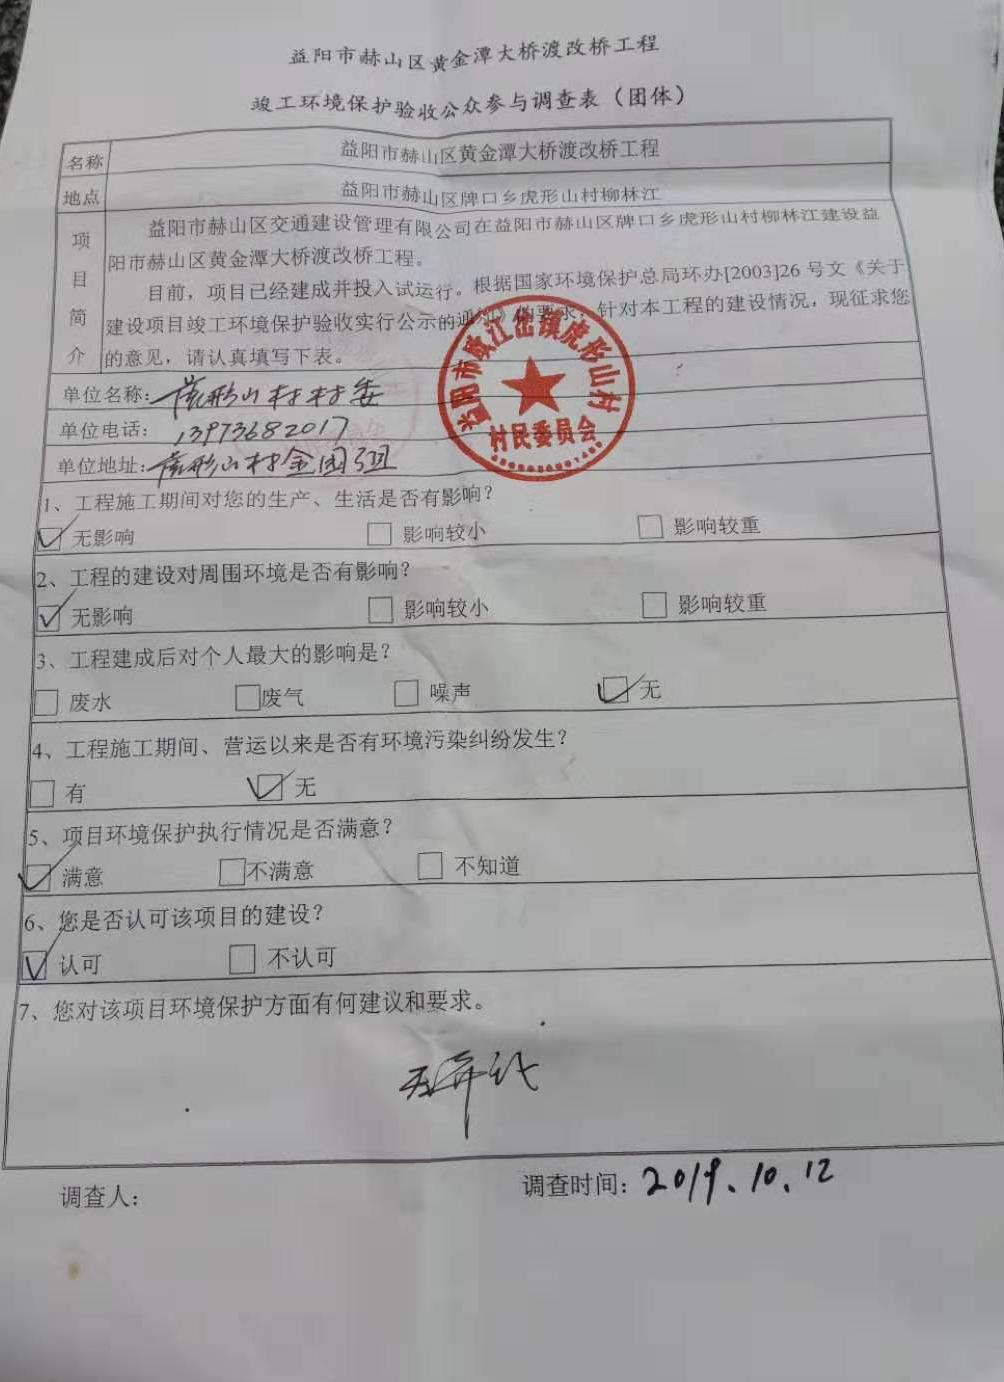 益阳市赫山区黄金潭大桥渡改桥工程
竣工环境保护验收公众参与调查表（团体）
名称 益阳市赫山区黄金潭大桥渡改桥工程
地点 益阳市赫山区牌口乡虎形山村柳林江
项目简介
益阳市赫山区交通建设管理有限公司在益阳市赫山区牌口乡虎形山村柳林江建设益
阳市赫山区黄金潭大桥渡改桥工程。
目前，项目已经建成并投入试运行。根据国家环境保护总局环办[2003]26 号文《关于
建设项目竣工环境保护验收实行公示的通知》的要求，针对本工程的建设情况，现征求您
的意见，请认真填写下表。
益阳市欧江岔镇虎形山村
村民委员会
单位名称：虎形山村村委
单位电话：13973682017
单位地址：虎形山村金园组
1、工程施工期间对您的生产、生活是否有影响？
☑ 无影响 □ 影响较小 □ 影响较重
2、工程的建设对周围环境是否有影响？
☑ 无影响 □ 影响较小 □ 影响较重
3、工程建成后对个人最大的影响是？
□ 废水 □废气 □ 噪声 ☑无
4、工程施工期间、营运以来是否有环境污染纠纷发生？
□ 有 ☑ 无
5、项目环境保护执行情况是否满意？
☑ 满意 □不满意 □ 不知道
6、您是否认可该项目的建设？
☑ 认可 □ 不认可
7、您对该项目环境保护方面有何建议和要求。
调查人：
调查时间：2019.10.12